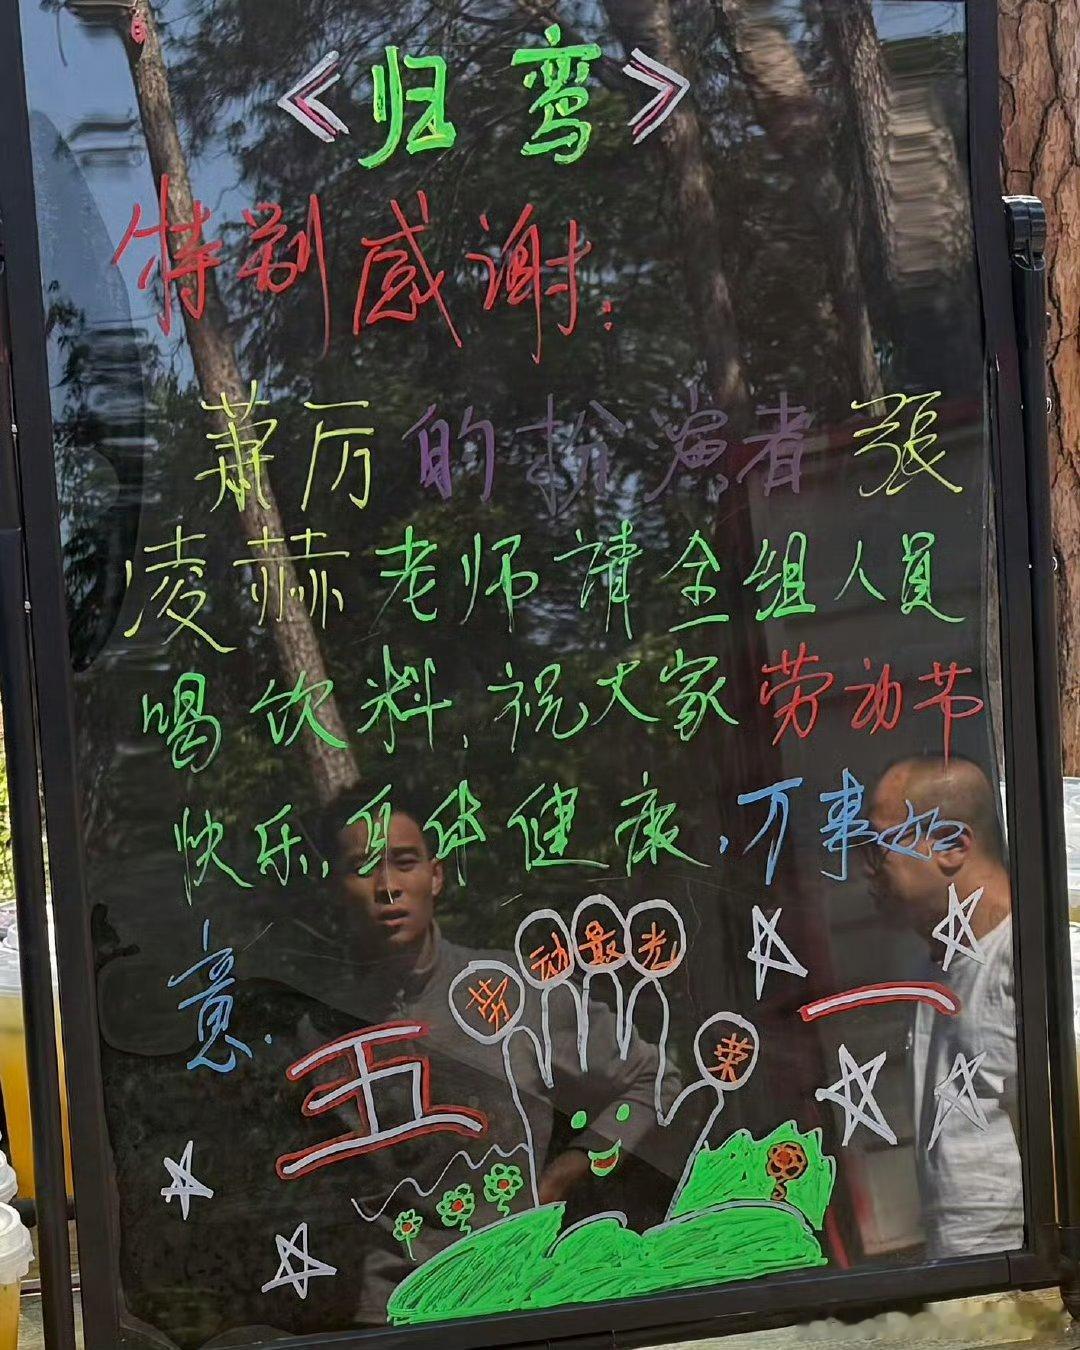 《归鸾》
特别感谢：
萧厉的扮演者张
凌赫老师请全组人员
喝饮料，祝大家劳动节
快乐，身体健康，万事如
意.
劳动最光荣
五一